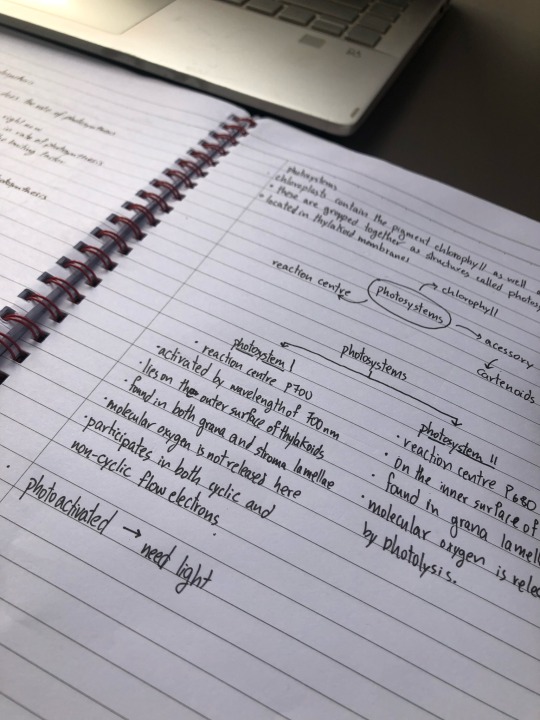 does the rate of photosynthesis
right now
in rate of photosynthesis
limiting factor
photosystems
chloroplasts contain the pigment chlorophyll as well
• these are grouped together as structures called photosy
• located in thylakoid membranes
reaction centre
photosystems
chlorophyll
acessory
cartenoids
photosystems
photosystem I
• reaction centre P700
• activated by wavelength of 700nm
• lies on the outer surface of thylakoids
• found in both grana and stroma lamellae
• molecular oxygen is not released here
• participates in both cyclic and
non-cyclic flow electrons.
photosystem II
• reaction centre P680
• on the inner surface of
• found in grana lamell
• molecular oxygen is relea
by photolysis.
• photoactivated → need light